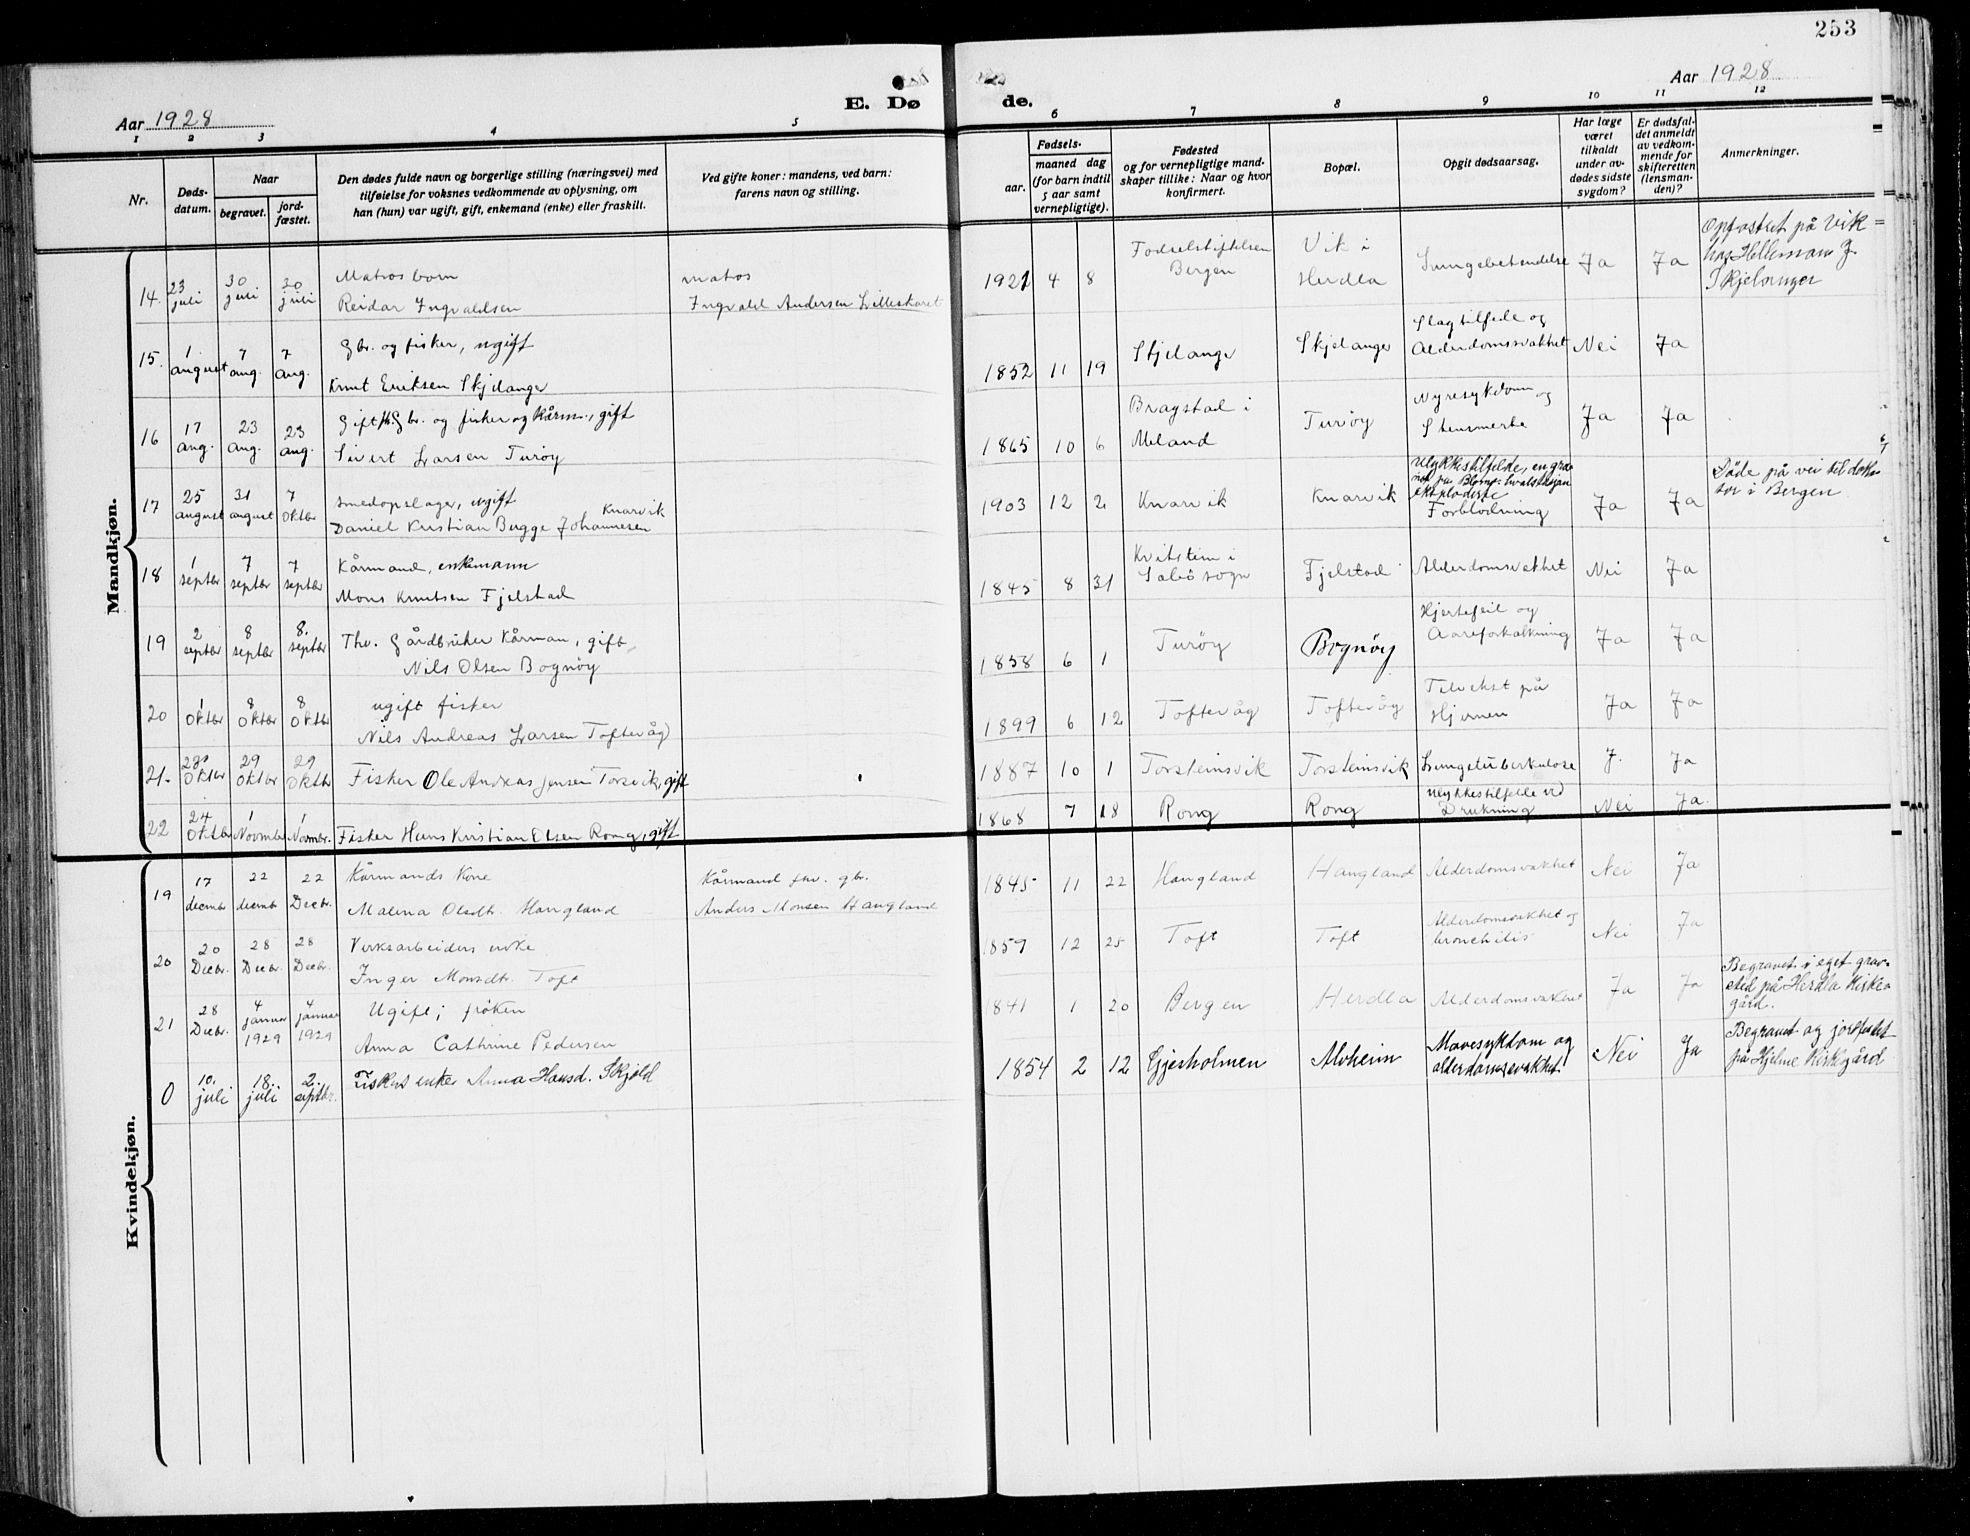 253
Aar 1928
E. Dø
de.
Aar 1928
1 2 3 4 5 6 7 8 9 10 11 12
Nr.
Døds-
datum.
Naar
begravet.
jord-
fæstet.
Den dødes fulde navn og borgerlige stilling (næringsvei) med
tilføielse for voksnes vedkommende av oplysning, om
han (hun) var ugift, gift, enkemand (enke) eller fraskilt.
Ved gifte koner: mandens, ved barn:
farens navn og stilling.
Fødsels-
aar.
maaned dag
(for barn indtil
5 aar samt
vernepligtige).
Fødested
og for vernepligtige mand-
skaper tillike: Naar og hvor
konfirmert.
Bopæl.
Opgit dødsaarsag.
Har læge
været
tilkaldt
under av-
dødes sidste
sygdom?
Er dødsfal-
det anmeldt
av vedkom-
mende for
skifteretten
(lensman-
den)?
Anmerkninger.
Mandkjøn.
14. 23 juli 30 juli 30 juli
Matros barn
Reidar Ingvaldsen
matros
Ingvald Andersen Lilleskaret
1921 4 8
Fødselstiftelsen
Bergen
Vik i
Herdla
Lungebetendelse
Ja Ja
Opfostret på Vik
hos
Skjelanger
15. 1 august 7 aug. 7 aug.
Gbr. og fisker, ugift
Knut Eriksen Skjelanger
1852 11 19
Skjelanger
Skjelanger
Slagtilfede og
Alderdomsvakhet
Nei Ja
16 17 aug. 23 aug. 23 aug.
Gbr. og fisker og kårm., gift
Sivert Larsen Turøy
1865 10 6
Bragstad i
Meland
Turøy
Nyresykdom og
Stensmerte
Ja Ja
17 25 august 31 august 7 oktbr
Smedopslager, ugift
Daniel Kristian Bugge Johannesen Knarvik
1903 12 2
Knarvik
Knarvik
Ulykkestilfelde, en gra-
nat fra Blomø hvalstasjon
eksploderte
Forblødning
Ja Ja
Døde på vei til dok-
tor i Bergen.
18 1 septbr 7 septbr 7 septbr
Kårmand, enkemann
Mons Knutsen Fjelstad
1845 8 31
Kvitstein i
Sæbø sogn
Fjelstad
Alderdomsvakhet
Nei Ja
19 2 septbr 8 septbr 8. septbr
Thv. Gårdbruker Kårman, gift
Nils Olsen Bognøy
1858 6 1
Turøy
Bognøy
Hjertefeil og
Aareforkalkning
Ja Ja
20 1 oktbr 8 oktbr 8 oktbr
ugift fisker
Nils Andreas Larsen Toftevåg
1899 6 12
Toftevåg
Toftevåg
Tilvekst på
Hjernen
Ja Ja
21. oktbr 29 oktbr 29 oktbr
Fisker Ole Andreas Jensen Torsvik, gift
1887 10 1
Torsteinsvik
Torsteinsvik
Lungetuberkulose
J. Ja
22 24 oktbr 1 Novmbr 1 Novmbr.
Fisker Hans Kristian Olsen Rong, gift
1868 7 18
Rong
Rong
Ulykkestilfelde ved
Drukning
Nei Ja.
Kvindekjøn.
19 17 decmbr 22 decmbr 22 Decbr.
Kårmands kone
Malena Olsdtr. Haugland
Kårmand fhv. gbr.
Anders Monsen Haugland
1845 11 22
Haugland
Haugland
Alderdomsvakhet
Nei Ja
20 20 Decbr. 28 Decbr. 28 Decbr.
Verksarbeiders enke
Inger Monsdtr. Toft
1859 12 25
Toft
Toft
Alderdomsvakhet og
bronchitis
Nei Ja
21 28 Decbr. 4 januar 1929 4 januar 1929
Ugift; frøken
Anna Cathrine Pedersen
1841 1 20
Bergen
Herdla
Alderdomsvakhet
Ja Ja
Begravet i eget grav-
sted på Herdla Kirke-
gård.
0 10. juli 18. juli 2. septbr.
Fiskers enke Anna Hansd. Skjold
1854 2 12
Gjesholmen
Alvheim
Mavesykdom og
alderdomsvakhet
Nei Ja
Begravet og jordfestet
på Hjelme Kirkegård